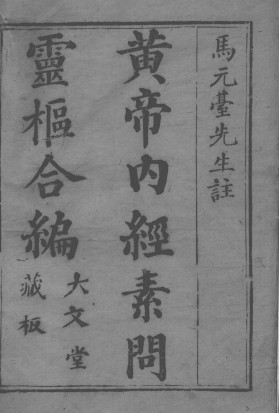 馬元臺先生註
黃帝內經素問
靈樞合編
大文堂
藏板